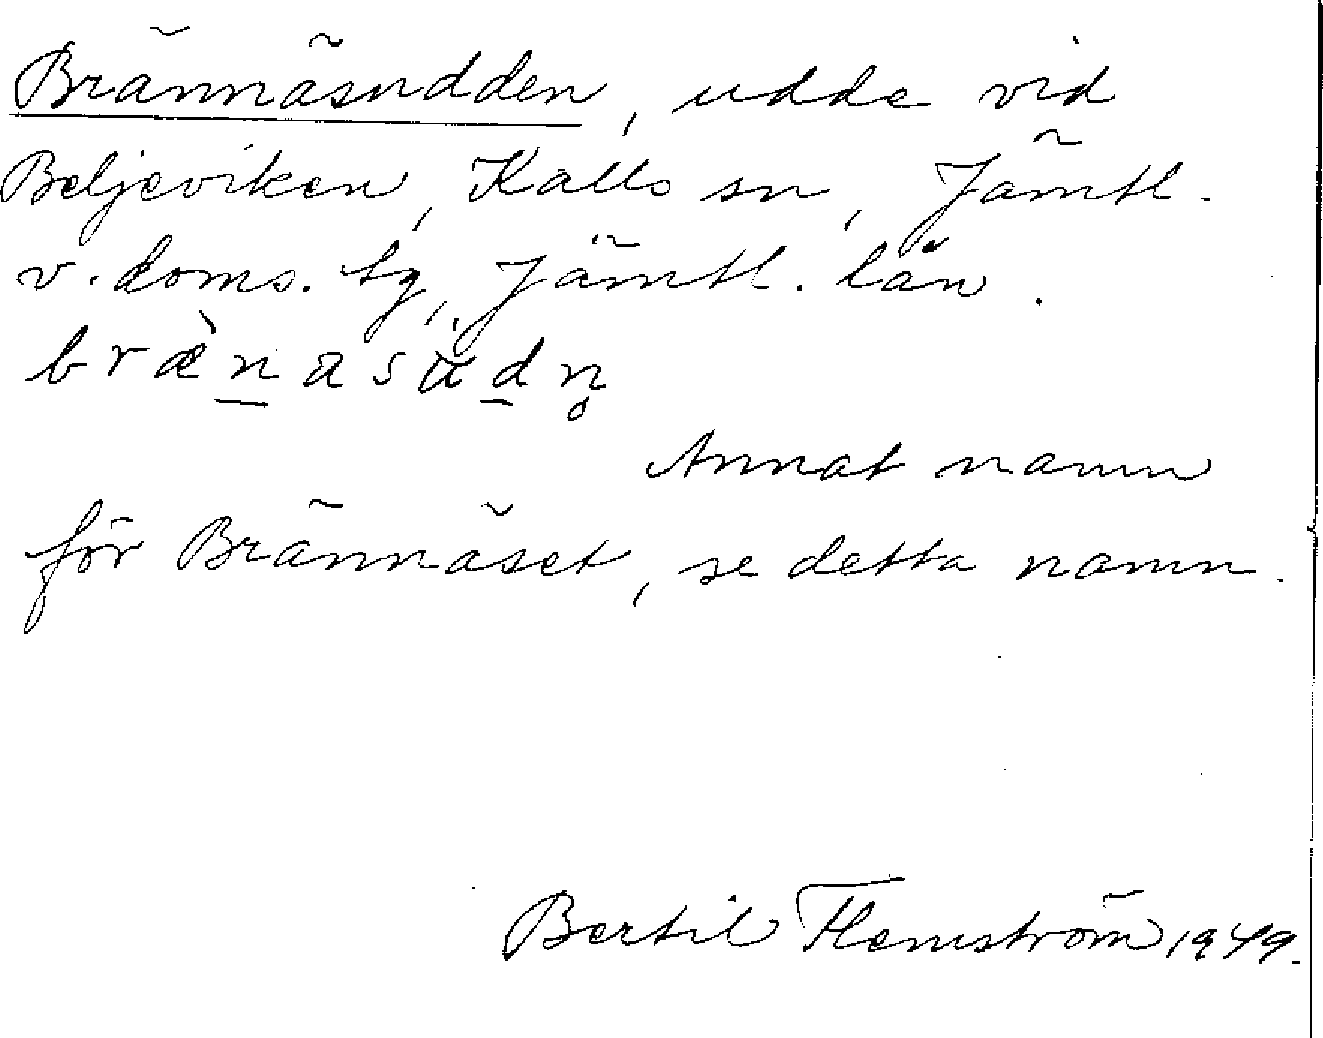 Brännäsudden, udde vid
Beljeviken, Kalls sn, Jämtl.
v. doms. tg, Jämtl. län.
bræ̀n̲asäd̲n̥
Annat namn
för Brännäset, se detta namn.
Bertil Flemström 1949.